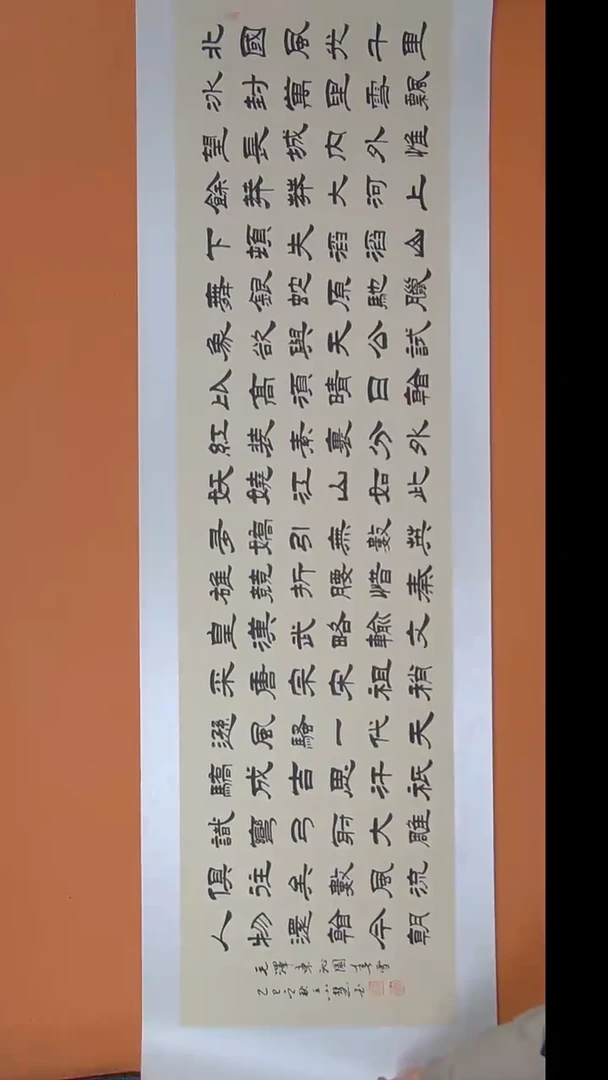 北國風光千里
冰封萬里雪飄
望長城內外惟
餘莽莽大河上
下頓失滔滔山
舞銀蛇原馳臘
象欲與天公試
比高須晴日看
紅裝素裹分外
妖嬈江山如此
多嬌引無數英
雄競折腰惜秦
皇漢武略輸文
采唐宗宋祖稍
遜風騷一代天
驕成吉思汗祇
識彎弓射大雕
俱往矣數風流
人物還看今朝
毛澤東沁園春雪
乙巳之秋王小書